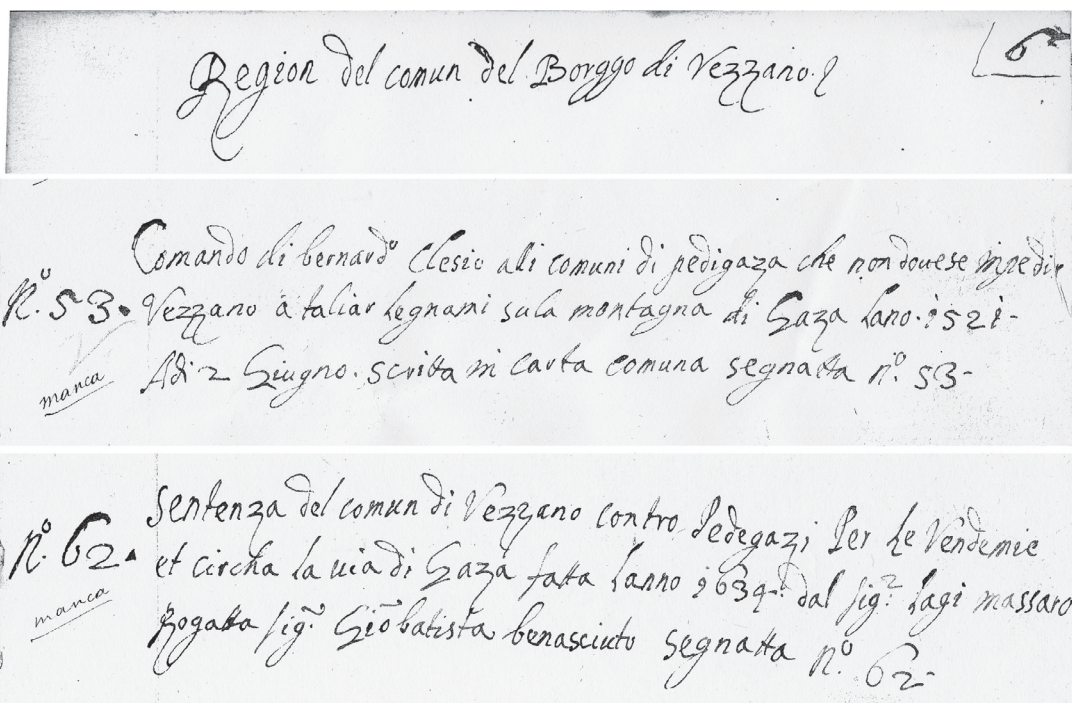 Region del comun del Borggo di Vezzano.
6
Comando di bernardo Clesio alli comuni di pedigaza che non dovese inpedir
N.o 53. Vezzano a taliar legnami sula montagna di Gaza Lano. 1521-
manca
Adi 2 Giugno. scritta in carta comuna segnatta no. 53-
Sentenza del comun di Vezzano contro Pedegazi Per le Vendemie
No. 62. et circha la uia di Gaza fatta lanno 1634. dal sig.r Lagi massaro
manca
Rogatta sig.r Gio batista benasciuto segnatta No. 62-